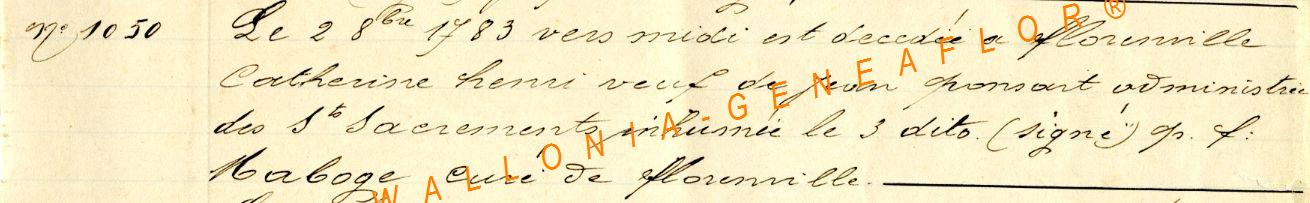 N° 1050
Le 2 8bre 1783 vers midi est decedée a florenville
Catherine henri veuf de jean ponsart administrée
des Sts Sacrements inhumée le 3 dito. (signé) p. f:
Maboge curé de florenville.
WALLONIA-GENEAFLOR®